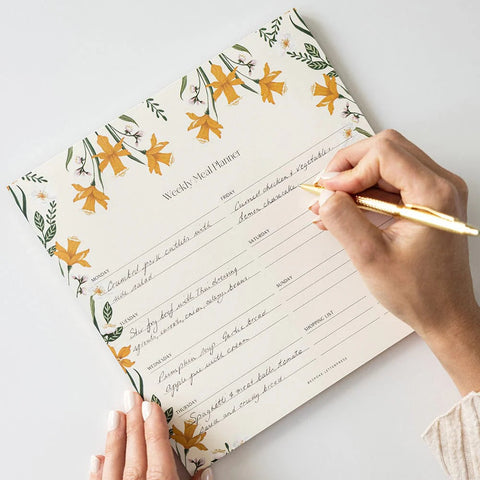 Weekly Meal Planner
MONDAY
Crumbed pork cutlets with
side salad
TUESDAY
Stir fry beef with Thai dressing
carrots, onion, celery, beans
WEDNESDAY
Pumpkin soup Garlic bread
Apple pie with cream
THURSDAY
Spaghetti & meat balls tomato
sauce and crusty bread
FRIDAY
Curried chicken & vegetables
SATURDAY
SUNDAY
SHOPPING LIST